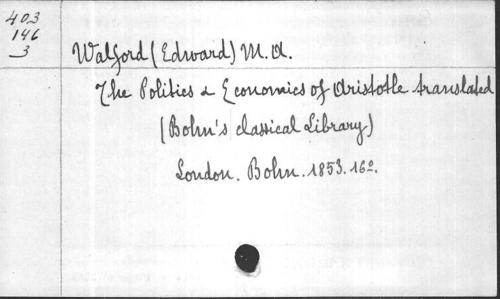 403
146
3
Walford (Edward) M.A.
The Politics & Economics of Aristotle translated
(Bohn's classical Library)
London. Bohn. 1853. 16º.